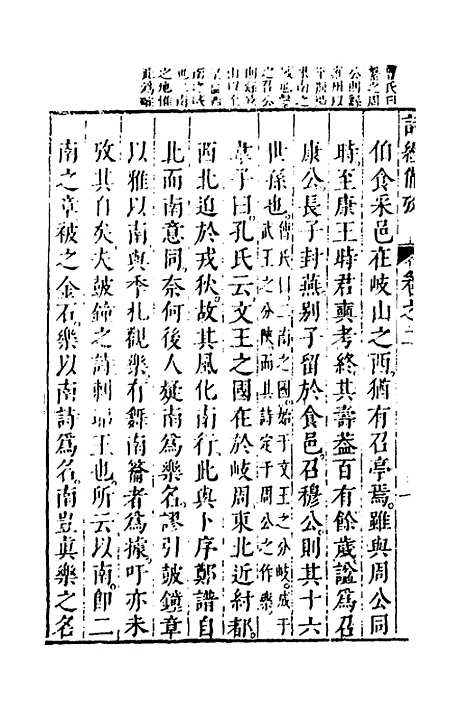 詩經備攷
卷之二
伯食采邑在岐山之西猶有召亭焉雖與周公同
時至康王時君奭考終其壽葢百有餘歲諡為召
康公長子封燕别子留於食邑召穆公則其十六
世孫也傅氏曰二南之國始于文王之分岐成于
武王之分陝而其詩定于周公之作樂
韋子曰孔氏云文王之國在於岐周東北近紂都
西北迫於戎狄故其風化南行此與卜序鄭譜自
北而南意同奈何後人疑南為樂名謬引鼓鐘章
以雅以南與季札觀樂有舞南籥者為據吁亦未
攷其自矣夫鼓鐘之詩刺幽王也所云以南卽二
南之章被之金石樂以南詩為名南豈眞樂之名